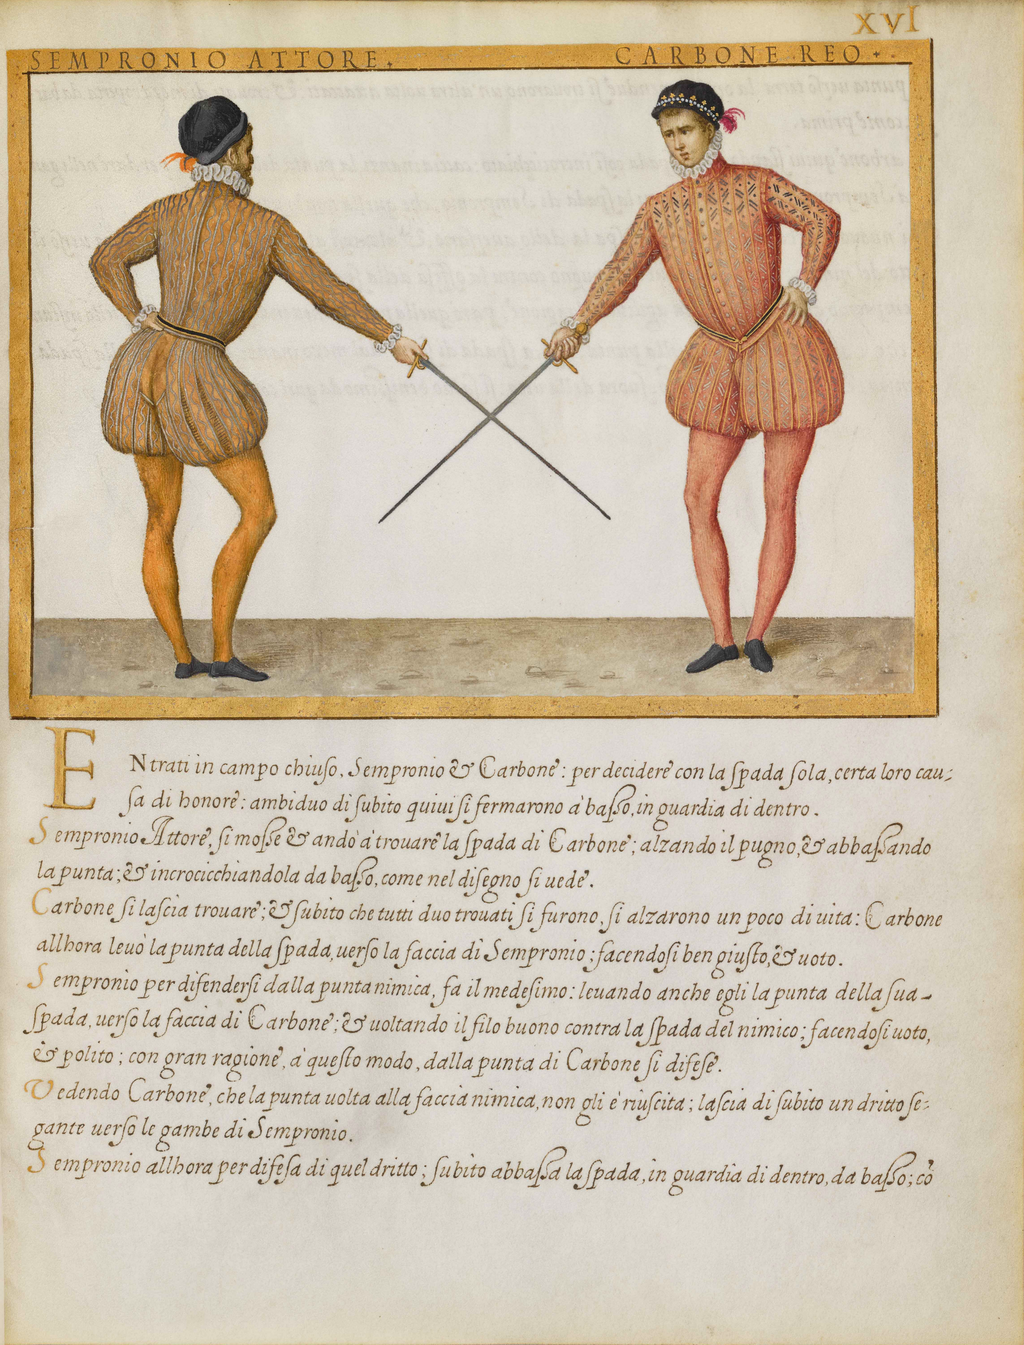 XVI
SEMPRONIO ATTORE. CARBONE REO.
ENtrati in campo chiuſo, Sempronio & Carbone: per decidere con la ſpada ſola, certa loro cau-
ſa di honore: ambiduo di ſubito quiui ſi fermarono à baſſo, in guardia di dentro.
Sempronio Attore, ſi moſſe & andò à trouare la ſpada di Carbone; alzando il pugno, & abbaſſando
la punta; & incrocicchiandola da baſſo, come nel diſegno ſi uede.
Carbone ſi laſcia trouare; & ſubito che tutti duo trouati ſi furono, ſi alzarono un poco di uita: Carbone
allhora leuò la punta della ſpada, uerſo la faccia di Sempronio; facendoſi ben giuſto, & uoto.
Sempronio per difenderſi dalla punta nimica, fa il medeſimo: leuando anche egli la punta della ſua
ſpada, uerſo la faccia di Carbone; & uoltando il filo buono contra la ſpada del nimico; facendoſi uoto,
& polito; con gran ragione, à queſto modo, dalla punta di Carbone ſi difeſe.
Vedendo Carbone, che la punta uolta alla faccia nimica, non gli è riuſcita; laſcia di ſubito un dritto ſe-
gante uerſo le gambe di Sempronio.
Sempronio allhora per difeſa di quel dritto; ſubito abbaſſa la ſpada, in guardia di dentro, da baſſo; cõ